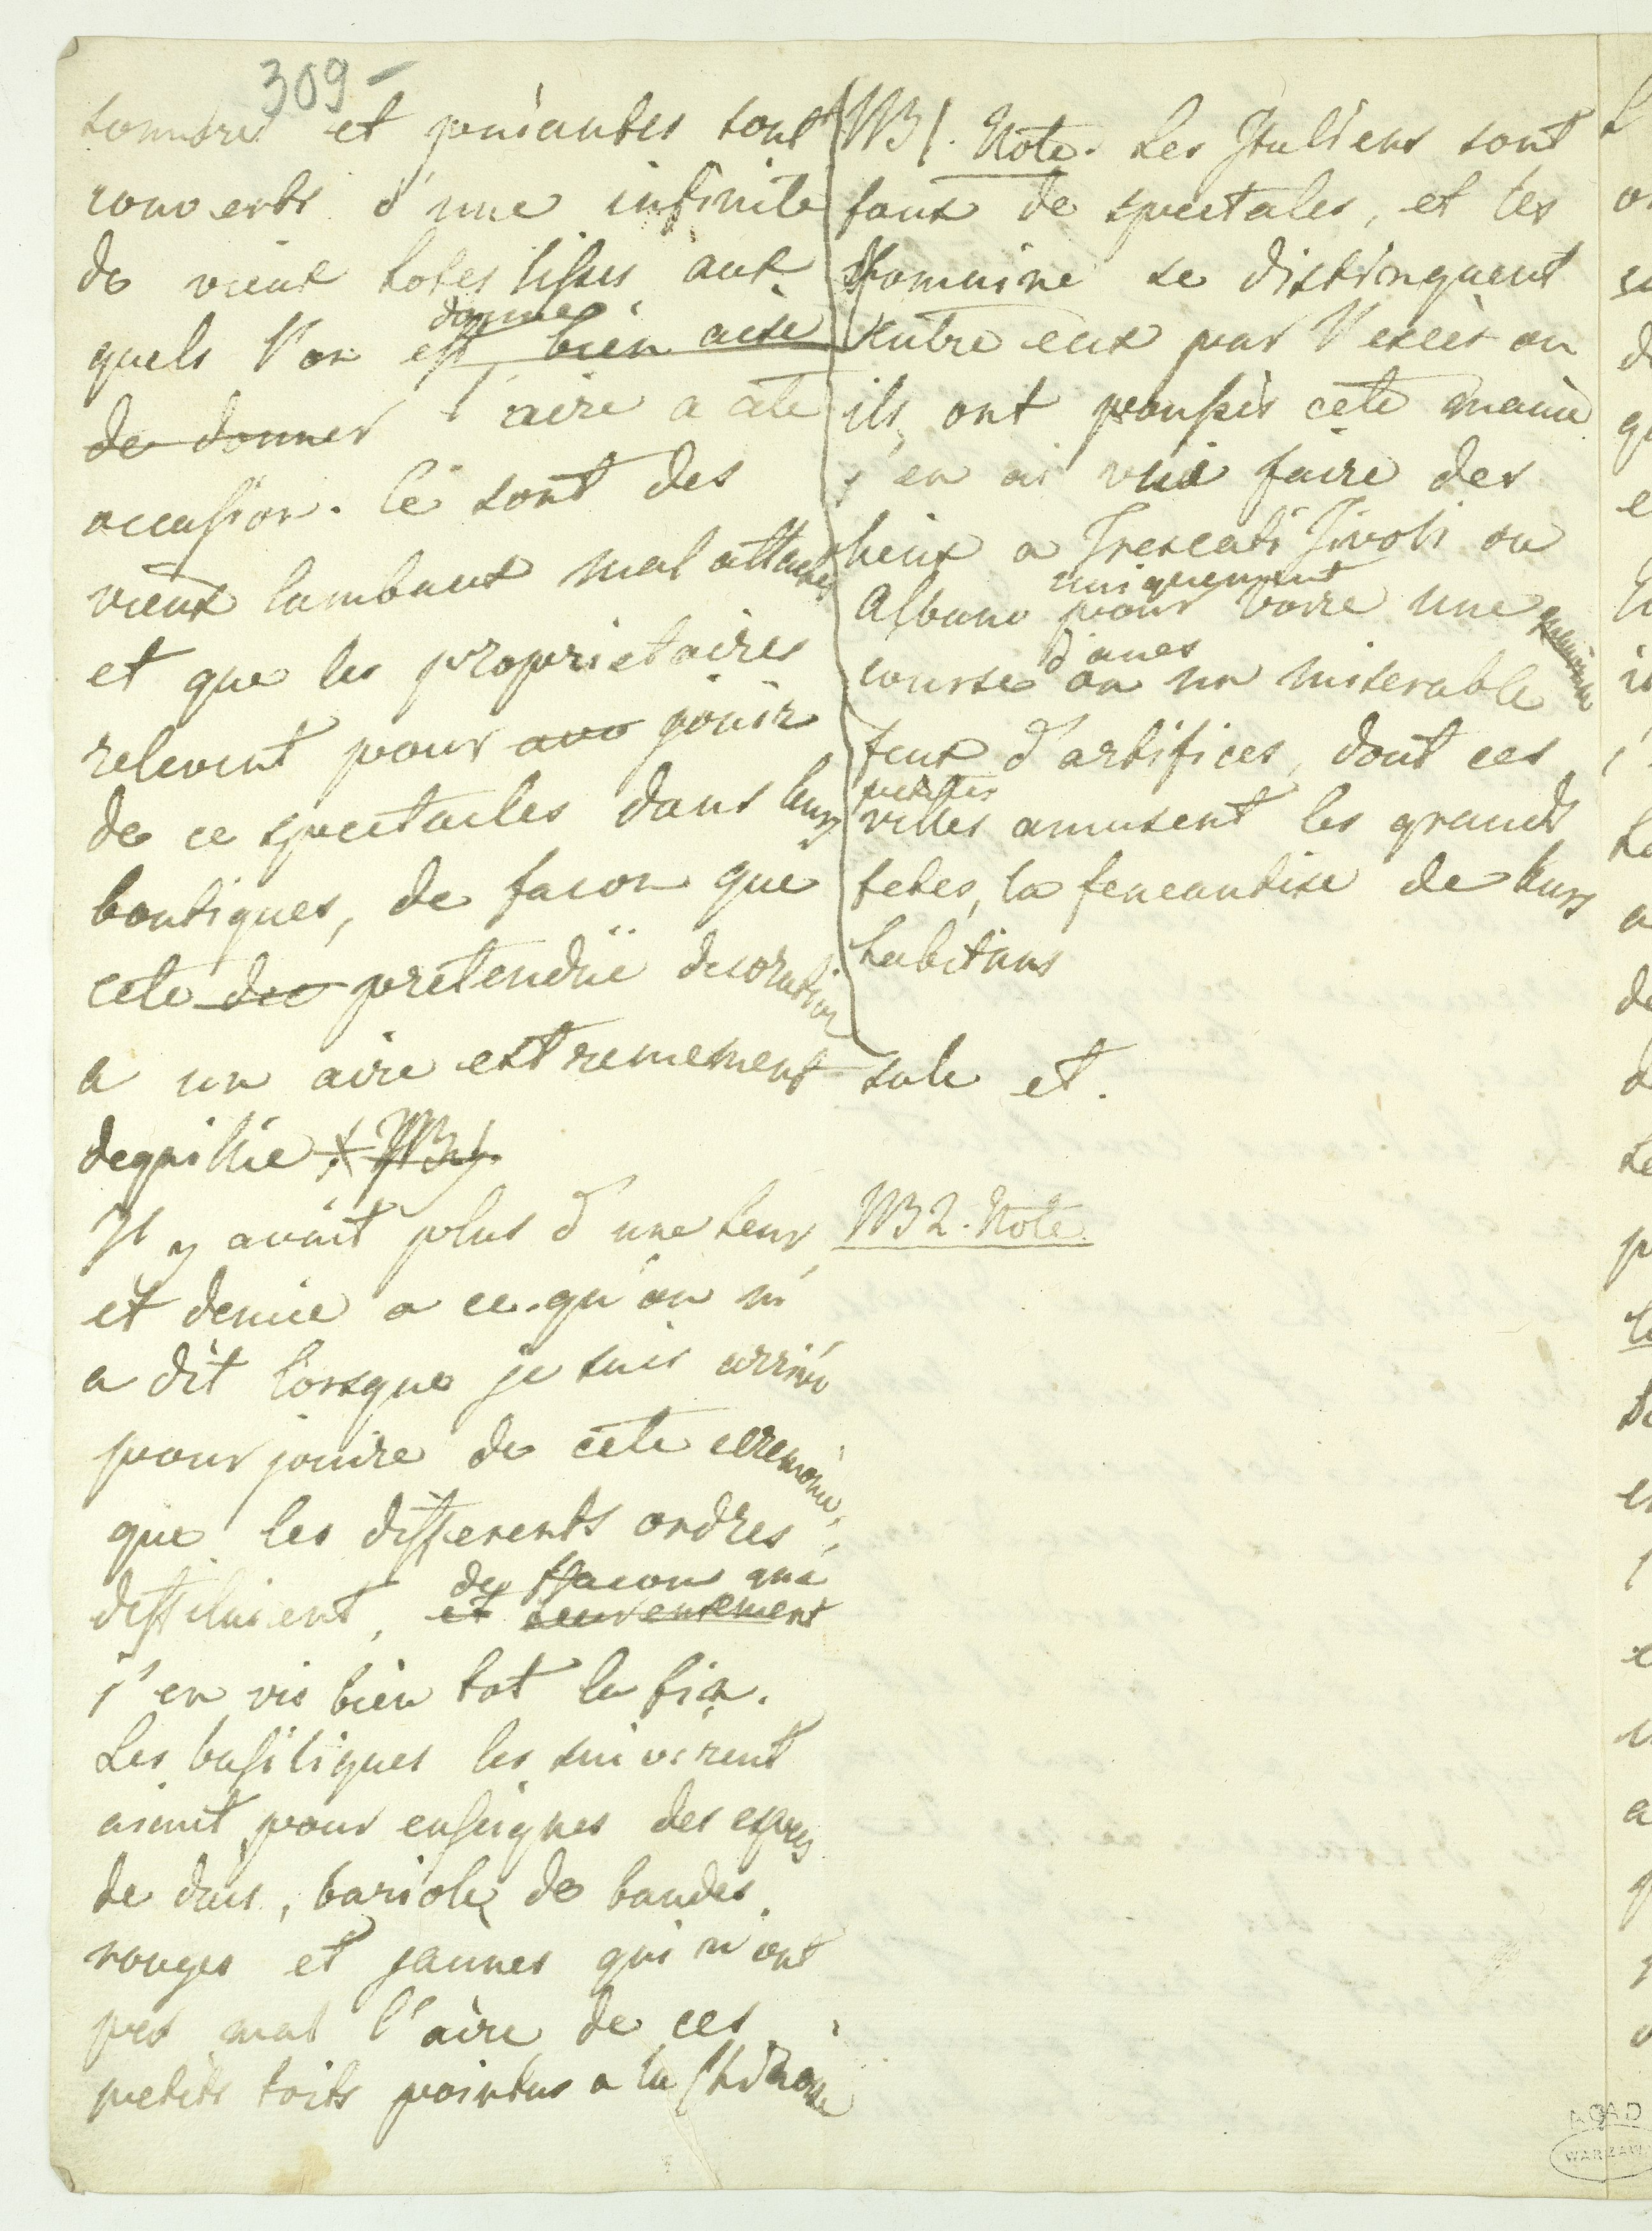 309-
sombres et puantes sont
couverts d'une infinite
de vieux tapisseries aux
quels l'on donne
est bien aise
de donner l'aire a cete
occassion. Ce sont des
vieux lambeaux mal attachés
et que les proprietaires
relevent pour avo jouir
de ce spectacles dans leurs
boutiques, de facon que
cete dec pretenduë decoration
a un aire extremement sale et.
degnillie
NB1. Note. Les Italiens sont
foux de spectales, et les
Romains se distinguent
entre eux par l'excès ou
ils ont poussés cete manie
j'en ai vuë faire des
lieux a Frescati Tivoli ou
Albano uniquement pour voire une
course d'anes ou un miserable
feux d'artifices, dont ces
petites
villes amusent les grands
fetes, la feneantise de leurs
habitans
Il y avait plus d'une heur
et demie a ce qu'on m'
a dit lorsque je suis arrivé
pour jouire de cete ceremonie,
que les differents ordres
deffiluient, de facon que
et heureusement
j'en vis bien tot la fin.
Les bassiliques les suivirent
aiant pour enseignes des especes
de dais, bariolés de bandes
rouges et jaunes qui n'ont
pas mal l'aire de ces
petits toits pointus a la Chinoise
NB2. Note.